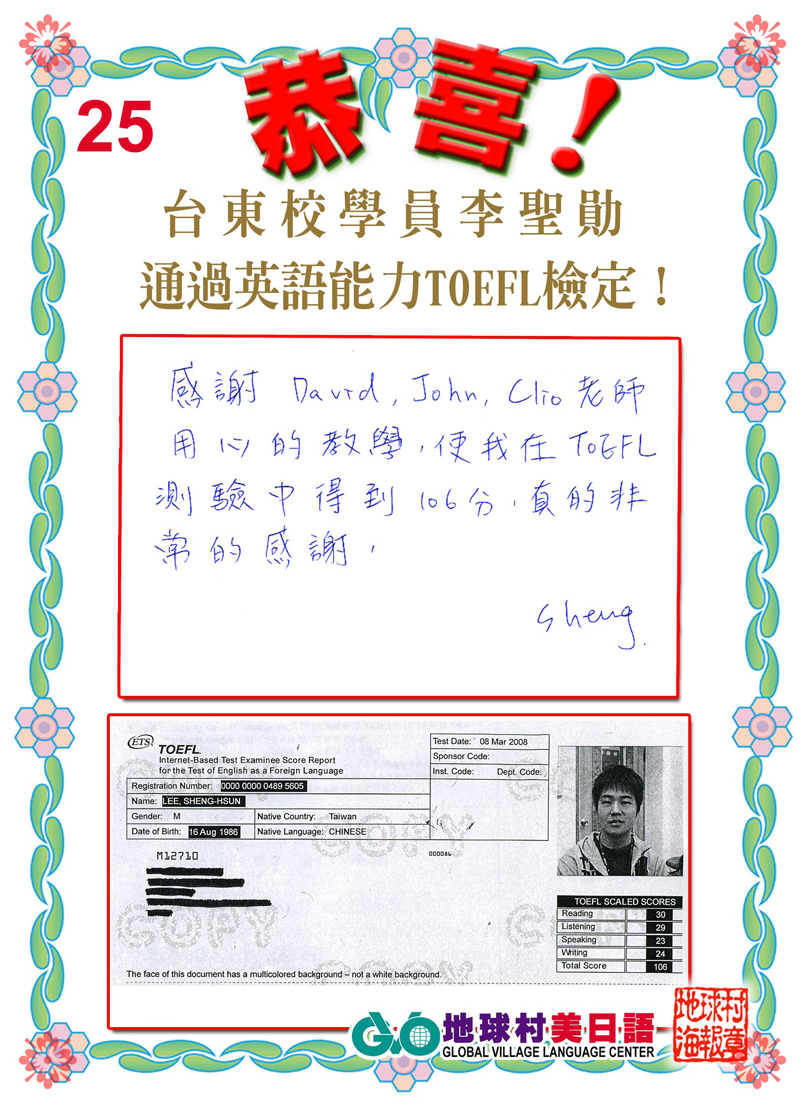 25
恭喜!
台東校學員李聖勛
通過英語能力TOEFL檢定！
感謝 David, John, Clio 老師
用心的教學，使我在 TOEFL
測驗中得到 106分，真的非
常的感謝，
Sheng.
ETS
TOEFL
Internet-Based Test Examinee Score Report
for the Test of English as a Foreign Language
Test Date: 08 Mar 2008
Sponsor Code:
Inst. Code: Dept. Code:
Registration Number: 0000 0000 0489 5605
Name: LEE, SHENG-HSUN
Gender: M Native Country: Taiwan
Date of Birth: 16 Aug 1986 Native Language: CHINESE
M12710
COPY
TOEFL SCALED SCORES
Reading 30
Listening 29
Speaking 23
Writing 24
Total Score 106
The face of this document has a multicolored background – not a white background.
GVO 地球村美日語
GLOBAL VILLAGE LANGUAGE CENTER
地球村
海報章